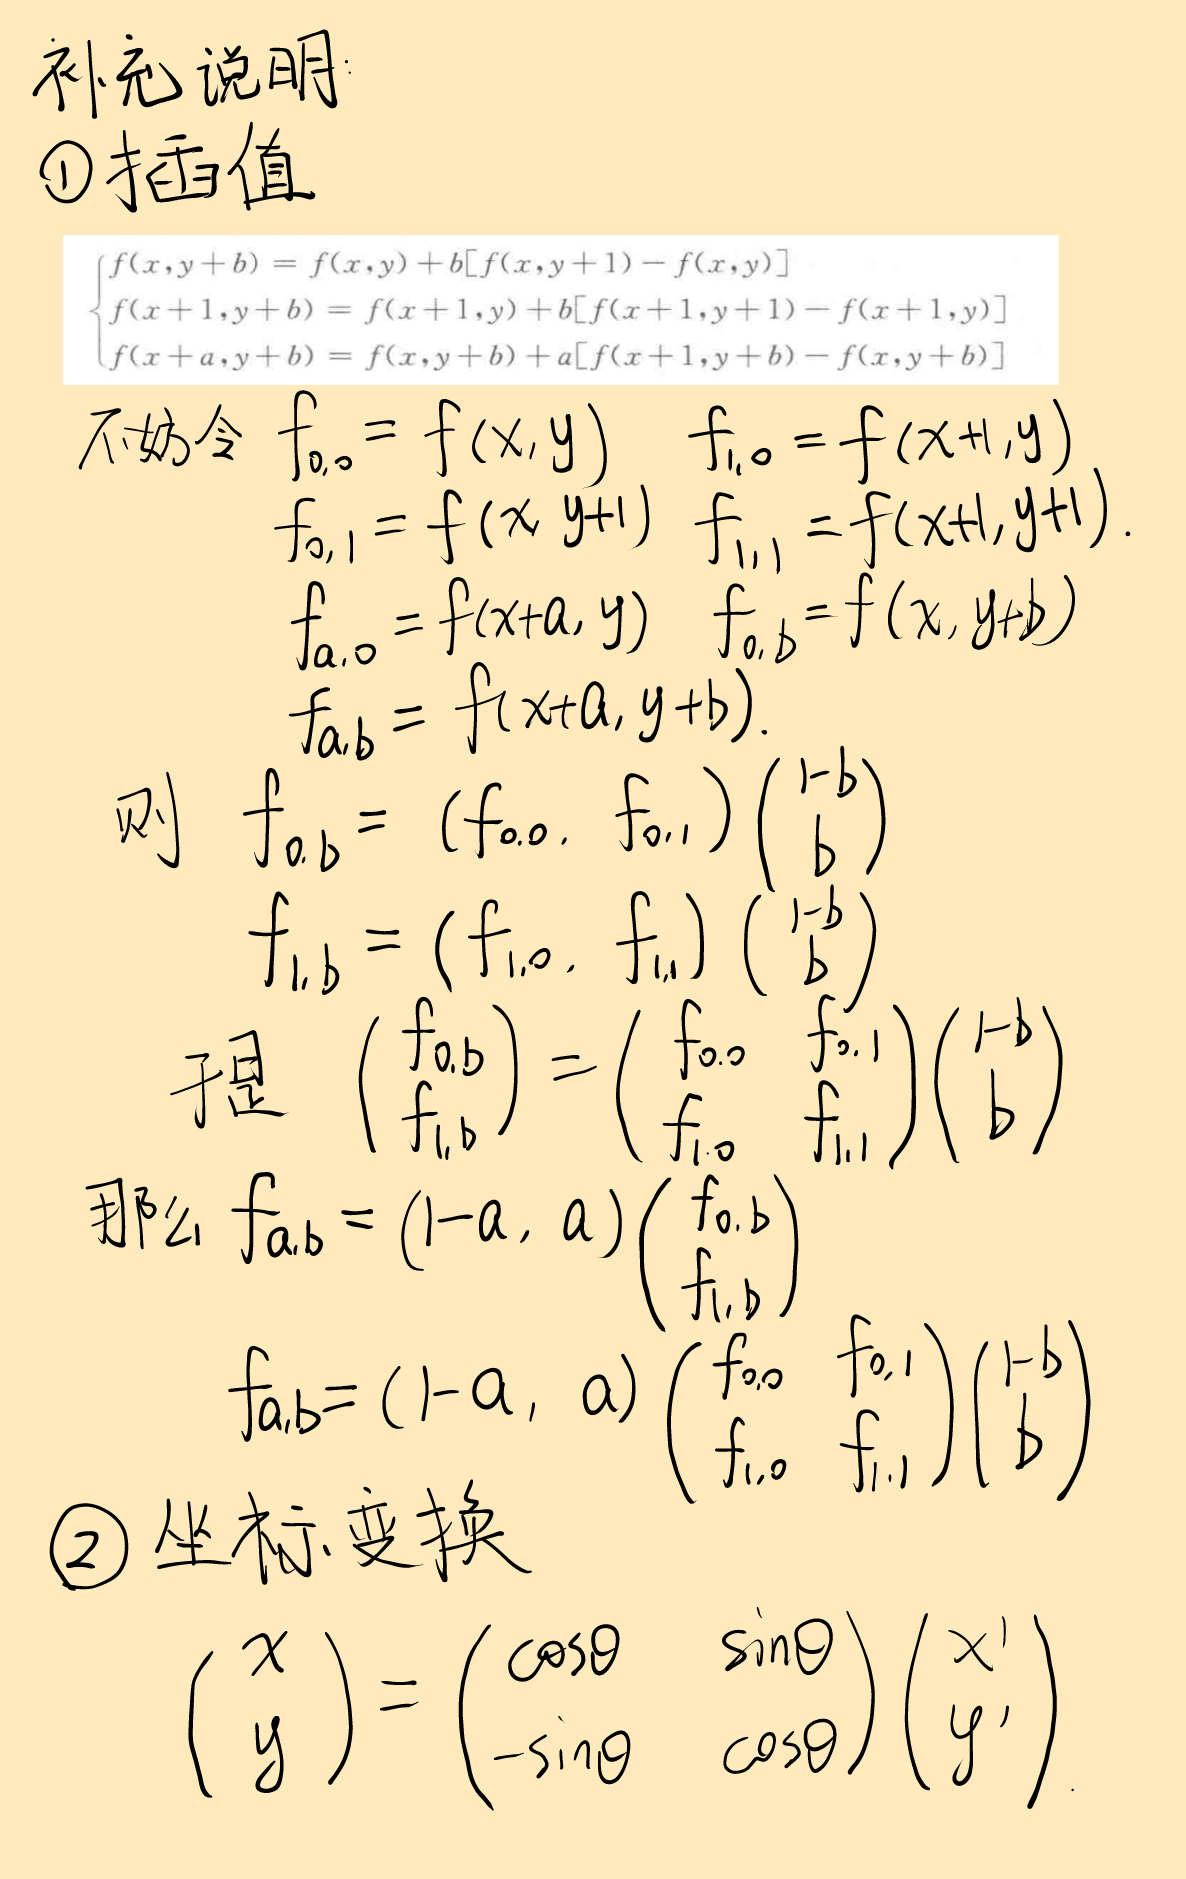 补充说明:
①插值
f(x,y+b) = f(x,y)+b[f(x,y+1)-f(x,y)]
f(x+1,y+b) = f(x+1,y)+b[f(x+1,y+1)-f(x+1,y)]
f(x+a,y+b) = f(x,y+b)+a[f(x+1,y+b)-f(x,y+b)]
不妨令 f0,0 = f(x,y) f1,0 = f(x+1,y)
f0,1 = f(x y+1) f1,1 = f(x+1,y+1).
fa,0 = f(x+a,y) f0,b = f(x,y+b)
fa,b = f(x+a,y+b).
则 f0,b = (f0,0, f0,1) (1-b b)
f1,b = (f1,0, f1,1) (1-b b)
于是 (f0,b f1,b) = (f0,0 f0,1 f1,0 f1,1) (1-b b)
那么 fa,b = (1-a, a) (f0,b f1,b)
fa,b = (1-a, a) (f0,0 f0,1 f1,0 f1,1) (1-b b)
②坐标变换
(x y) = (cosθ sinθ -sinθ cosθ) (x' y').